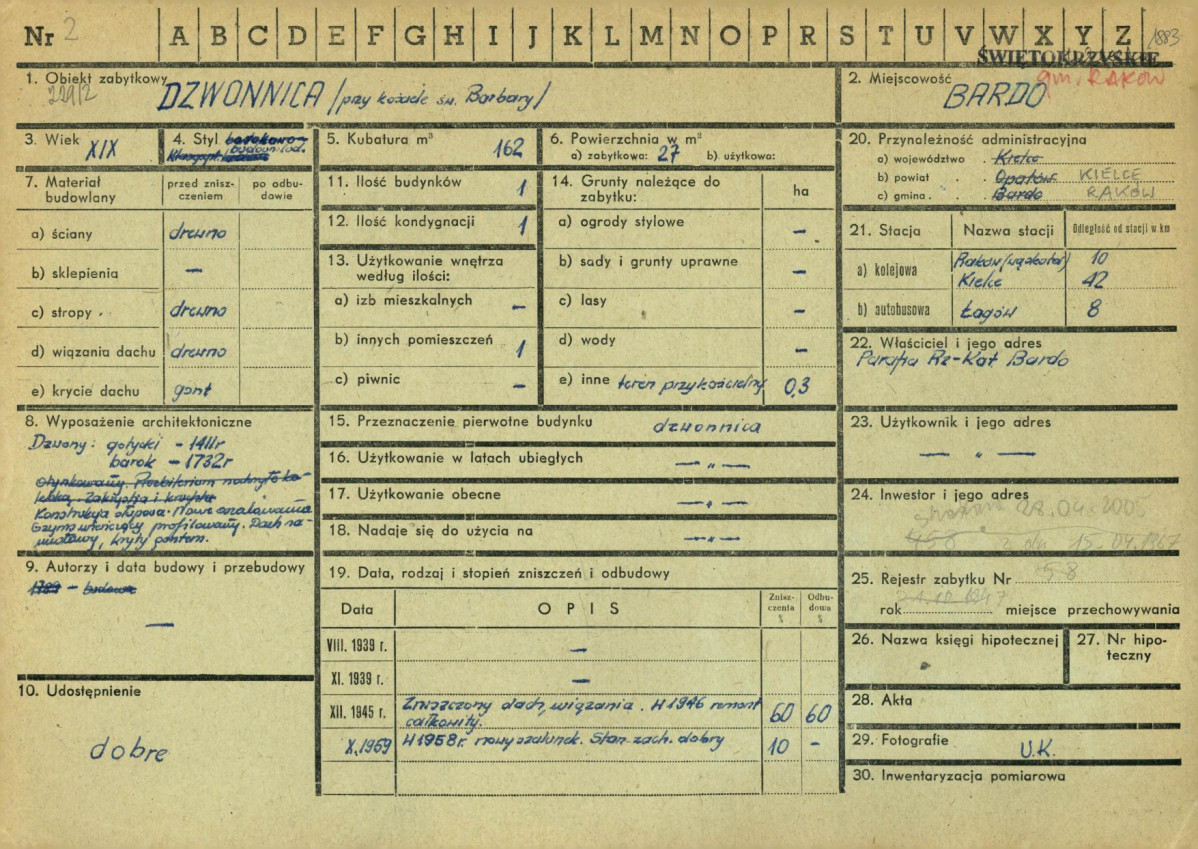 Nr 2 A B C D E F G H I J K L M N O P R S T U V W X Y Z 1883
ŚWIĘTOKRZYSKIE
1. Obiekt zabytkowy
229/2
DZWONNICA /przy kościele św. Barbary/
2. Miejscowość
gm. RAKÓW
BARDO
3. Wiek XIX
4. Styl barokowo-
budown. lud.
5. Kubatura m³ 162
6. Powierzchnia w m²
a) zabytkowa: 27 b) użytkowa:
7. Materiał budowlany
przed zniszczeniem
po odbudowie
a) ściany drewno
b) sklepienia —
c) stropy drewno
d) wiązania dachu drewno
e) krycie dachu gont
11. Ilość budynków 1
12. Ilość kondygnacji 1
13. Użytkowanie wnętrza
według ilości:
a) izb mieszkalnych —
b) innych pomieszczeń 1
c) piwnic —
14. Grunty należące do
zabytku:
ha
a) ogrody stylowe —
b) sady i grunty uprawne —
c) lasy —
d) wody —
e) inne teren przykościelny 0,3
20. Przynależność administracyjna
a) województwo . Kielce
b) powiat . . Opatów KIELCE
c) gmina . . Bardo RAKÓW
21. Stacja
Nazwa stacji
Odległość od stacji w km
a) kolejowa
Raków (wąskotor) 10
Kielce 42
b) autobusowa Łagów 8
22. Właściciel i jego adres
Parafia Rz-Kat Bardo
8. Wyposażenie architektoniczne
Dzwony: gotycki - 1411r
barok - 1732r
Otynkowany. Prezbiterium nakryte ko-
lebką. Zakrystja i kruchta
Konstrukcja słupowa. Nowe oszalowanie
Gzyms wieńczący profilowany. Dach na-
miotowy, kryty gontem.
15. Przeznaczenie pierwotne budynku dzwonnica
16. Użytkowanie w latach ubiegłych — „ —
17. Użytkowanie obecne — „ —
18. Nadaje się do użycia na — „ —
23. Użytkownik i jego adres
— „ —
24. Inwestor i jego adres
28.04.2005
458 z dn 15.04.1967
9. Autorzy i data budowy i przebudowy
1789 - budowa
—
19. Data, rodzaj i stopień zniszczeń i odbudowy
Data
OPIS
Zniszczenia %
Odbudowa %
VIII. 1939 r. —
XI. 1939 r. —
XII. 1945 r. Zniszczony dach, wiązania. W 1946 remont
całkowity. 60 60
X.1959 W 1958 r. nowy szalunek. Stan zach. dobry 10 -
25. Rejestr zabytku Nr 58
rok miejsce przechowywania
26. Nazwa księgi hipotecznej
27. Nr hipo-
teczny
10. Udostępnienie
dobre
28. Akta
29. Fotografie U.K.
30. Inwentaryzacja pomiarowa